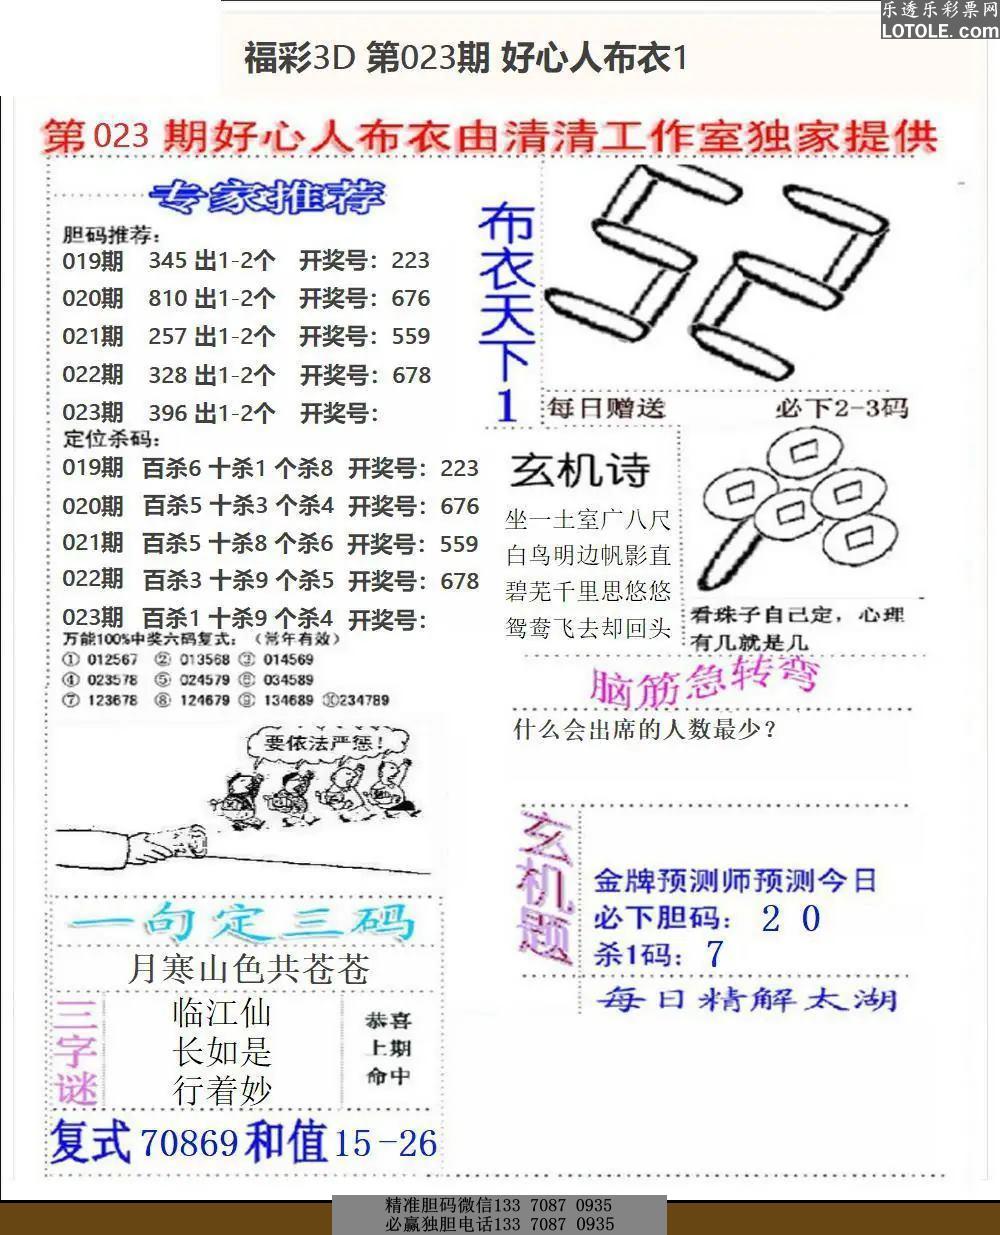 乐透乐彩票网
LOTOLE.com
福彩3D 第023期 好心人布衣1
第 023 期好心人布衣由清清工作室独家提供
专家推荐
胆码推荐：
019期 345 出1-2个 开奖号：223
020期 810 出1-2个 开奖号：676
021期 257 出1-2个 开奖号：559
022期 328 出1-2个 开奖号：678
023期 396 出1-2个 开奖号：
定位杀码：
019期 百杀6 十杀1 个杀8 开奖号：223
020期 百杀5 十杀3 个杀4 开奖号：676
021期 百杀5 十杀8 个杀6 开奖号：559
022期 百杀3 十杀9 个杀5 开奖号：678
023期 百杀1 十杀9 个杀4 开奖号：
万能100%中奖六码复式：（常年有效）
① 012567 ② 013568 ③ 014569
④ 023578 ⑤ 024579 ⑥ 034589
⑦ 123678 ⑧ 124679 ⑨ 134689 ⑩234789
要依法严惩！
一句定三码
月寒山色共苍苍
三字谜
临江仙
长如是
行着妙
恭喜
上期
命中
复式 70869 和值 15-26
布衣天下1
52
每日赠送 必下2-3码
玄机诗
坐一土室广八尺
白鸟明边帆影直
碧芜千里思悠悠
鸳鸯飞去却回头
看珠子自己定，心理
有几就是几
脑筋急转弯
什么会出席的人数最少？
玄机题
金牌预测师预测今日
必下胆码：2 0
杀1码：7
每日精解太湖
精准胆码微信133 7087 0935
必赢独胆电话133 7087 0935